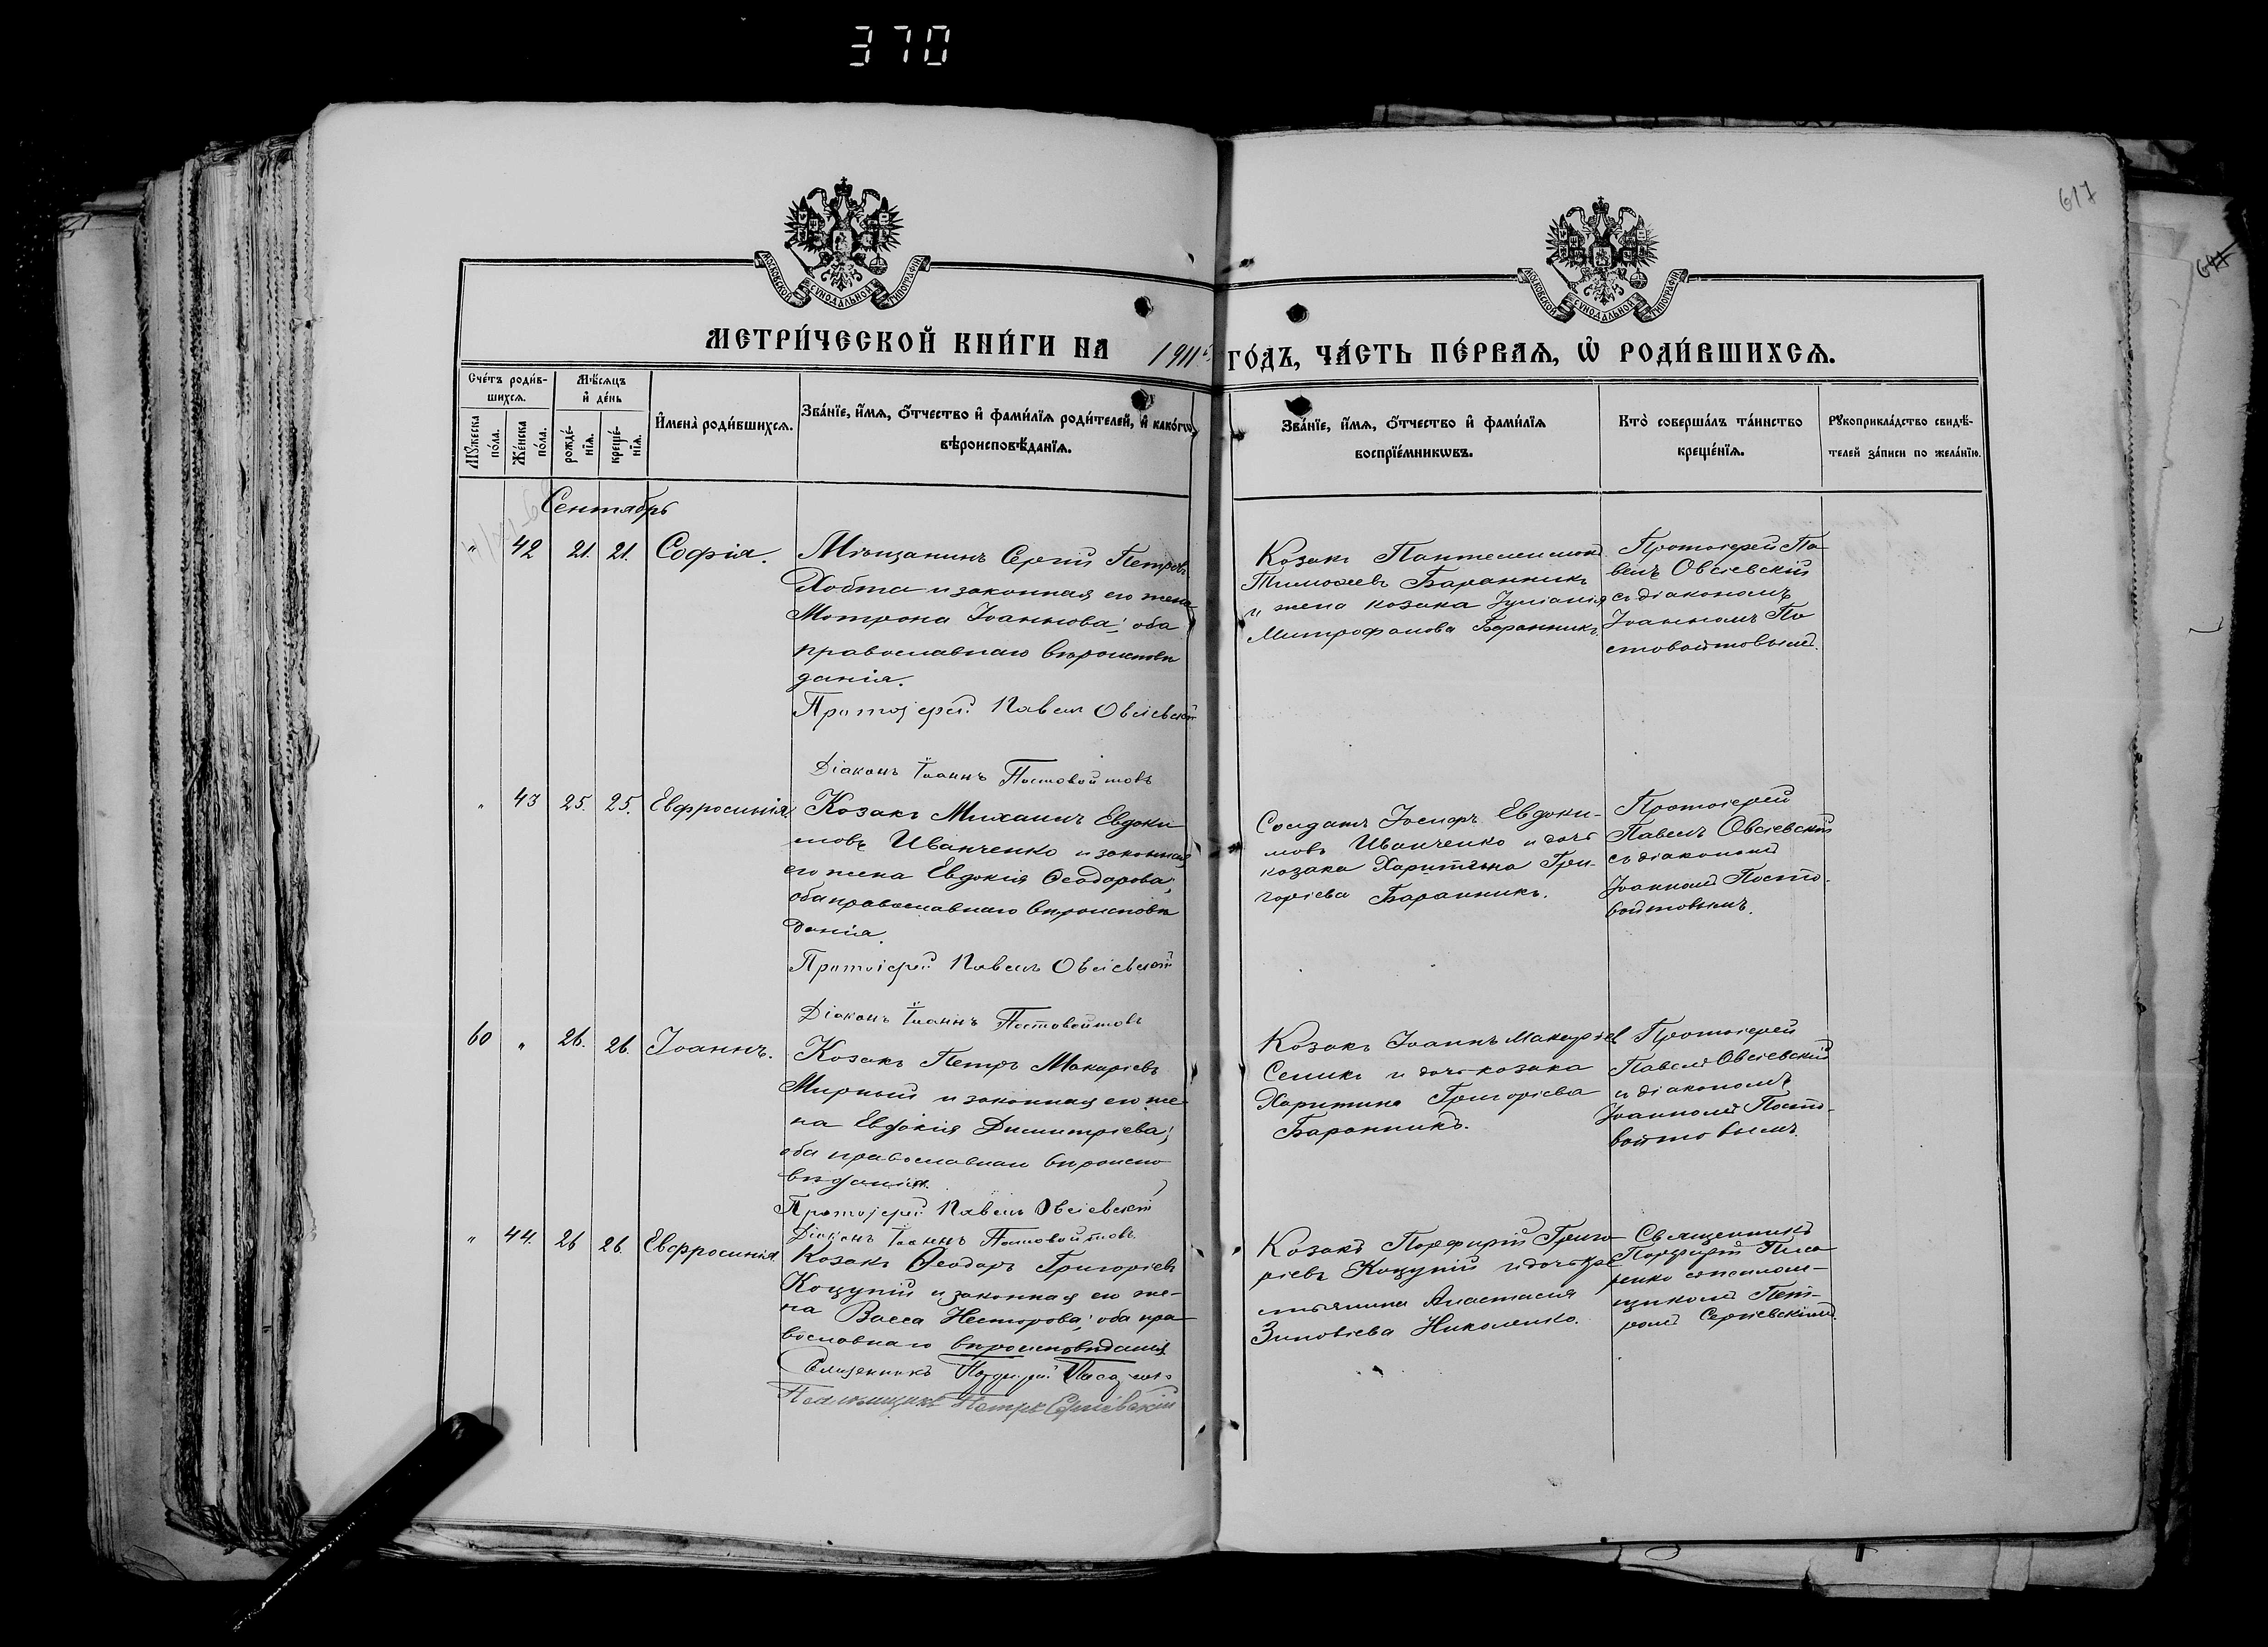 370
617
МОСКОВСКОЙ СѴНОДАЛЬНОЙ ТИПОГРАФІИ
МОСКОВСКОЙ СѴНОДАЛЬНОЙ ТИПОГРАФІИ
МЕТРИ́ЧЕСКОЙ КНИ́ГИ НА 1911 ГО́ДЪ, ЧА́СТЬ ПЕ́РВАѦ, Ѡ҆ РОДИ́ВШИХСѦ.
Сче́тъ роди́в-
шихсѧ.
Мꙋ́жеска по́ла.
Же́нска по́ла.
Мѣ́сѧцъ
и҆ де́нь
рожде́-
нїѧ.
креще́-
нїѧ.
И҆мена̀ роди́вшихсѧ.
Зва́нїе, и҆́мѧ, ѻ҆́тчество и҆ фами́лїѧ роди́телей, и҆ како́гѡ
вѣроисповѣ́данїѧ.
Зва́нїе, и҆́мѧ, ѻ҆́тчество и҆ фами́лїѧ
воспрїе́мникѡвъ.
Кто̀ соверша́лъ та́инство
креще́нїѧ.
Рꙋкоприкла́дство свидѣ́-
телей за́писи по жела́нїю.
Сентябрь
" 42 21. 21. Софія.
Мѣщанинъ Сергій Петровъ
Хобта и законная его жена
Мотрона Іоаннова; оба
православнаго вѣроисповѣ
данія.
Протоіерей Павелъ Овсіевскій
Діаконъ Іоаннъ Постовойтовъ
Козакъ Пантелеимонъ
Тимоѳеевъ Баранникъ
и жена козака Іуліанія
Митрофанова Баранникъ.
Протоіерей Па-
велъ Овсіевскій
съ діакономъ
Іоанномъ По
стовойтовымъ.
" 43 25. 25. Евфросинія.
Козакъ Михаилъ Евдоки
мовъ Иванченко и законная
его жена Евдокія Ѳеодорова;
оба православнаго вѣроисповѣ
данія.
Протоіерей Павелъ Овсіевскій
Діаконъ Іоаннъ Постовойтовъ
Солдатъ Іосифъ Евдоки-
мовъ Иванченко и дочь
козака Харитина Гри-
горіева Баранникъ.
Протоіерей
Павелъ Овсіевскій
съ діакономъ
Іоанномъ Посто-
войтовымъ.
60 " 26. 26. Іоаннъ.
Козакъ Петръ Макаріевъ
Мирный и законная его же-
на Евдокія Димитріева;
оба православнаго вѣроиспо
вѣданія.
Протоіерей Павелъ Овсіевскій
Діаконъ Іоаннъ Постовойтовъ
Козакъ Іоаннъ Макаріев
Семикъ и дочь козака
Харитина Григоріева
Баранникъ.
Протоіерей
Павелъ Овсіевскій
съ діакономъ
Іоанномъ Посто-
войтовымъ.
" 44. 26 26. Евфросинія
Козакъ Ѳеодоръ Григоріевъ
Коцупій и законная его же-
на Васса Несторова; оба пра
вославнаго вѣроисповѣданія
Священникъ Порфирій
Псаломщикъ Петръ Сергіевскій
Козакъ Порфирій Григо
ріевъ Коцупій и дочь кре
стьянина Анастасія
Зиновіева Николенко.
Священникъ
Порфирій
съ псалом-
щикомъ Пет-
ромъ Сергіевскимъ.